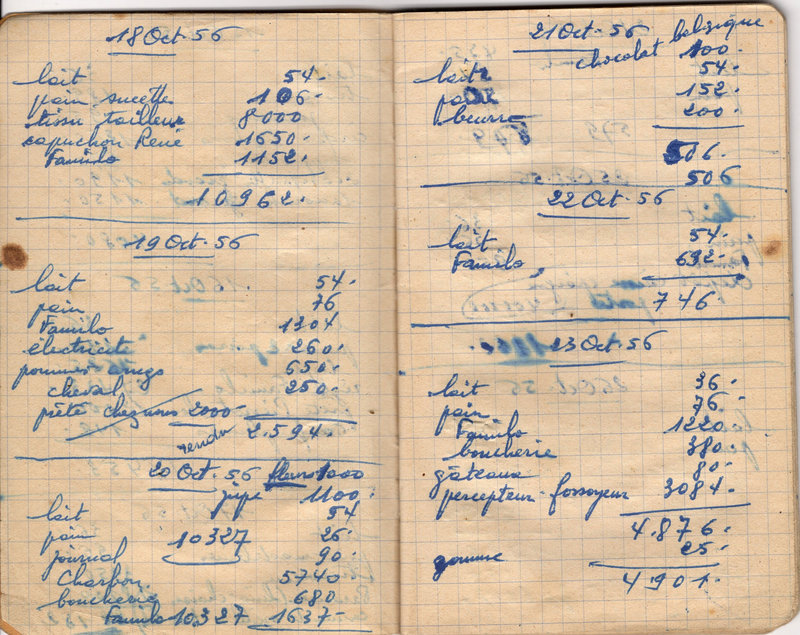 18 Oct. 56
lait 54.
pain sucettes 106.
tissu tailleur 8000
capuchon René 1650.
Familo 1152.
10962.
19 Oct. 56
lait 54.
pain 76
Familo 1304
électricité 260.
pommes 650.
cheval 250.
prêté chez nous 2000
rendu 2.594.
20 Oct. 56 fleurs 1000
jupe 1100.
lait 54
pain 10327 26.
journal 90.
Charbon 5740
boucherie 680
Familo 10.327 1637
21 Oct. 56
chocolat belgique 100.
lait 54.
pain 152.
beurre 200.
506.
506
22 Oct. 56
lait 54.
Familo 692.
746
23 Oct. 56
lait 36.
pain 76.
Familo 1220
boucherie 380.
gâteaux 80.
percepteur-fossoyeur 3084.
4.876.
gomme 25.
4901.